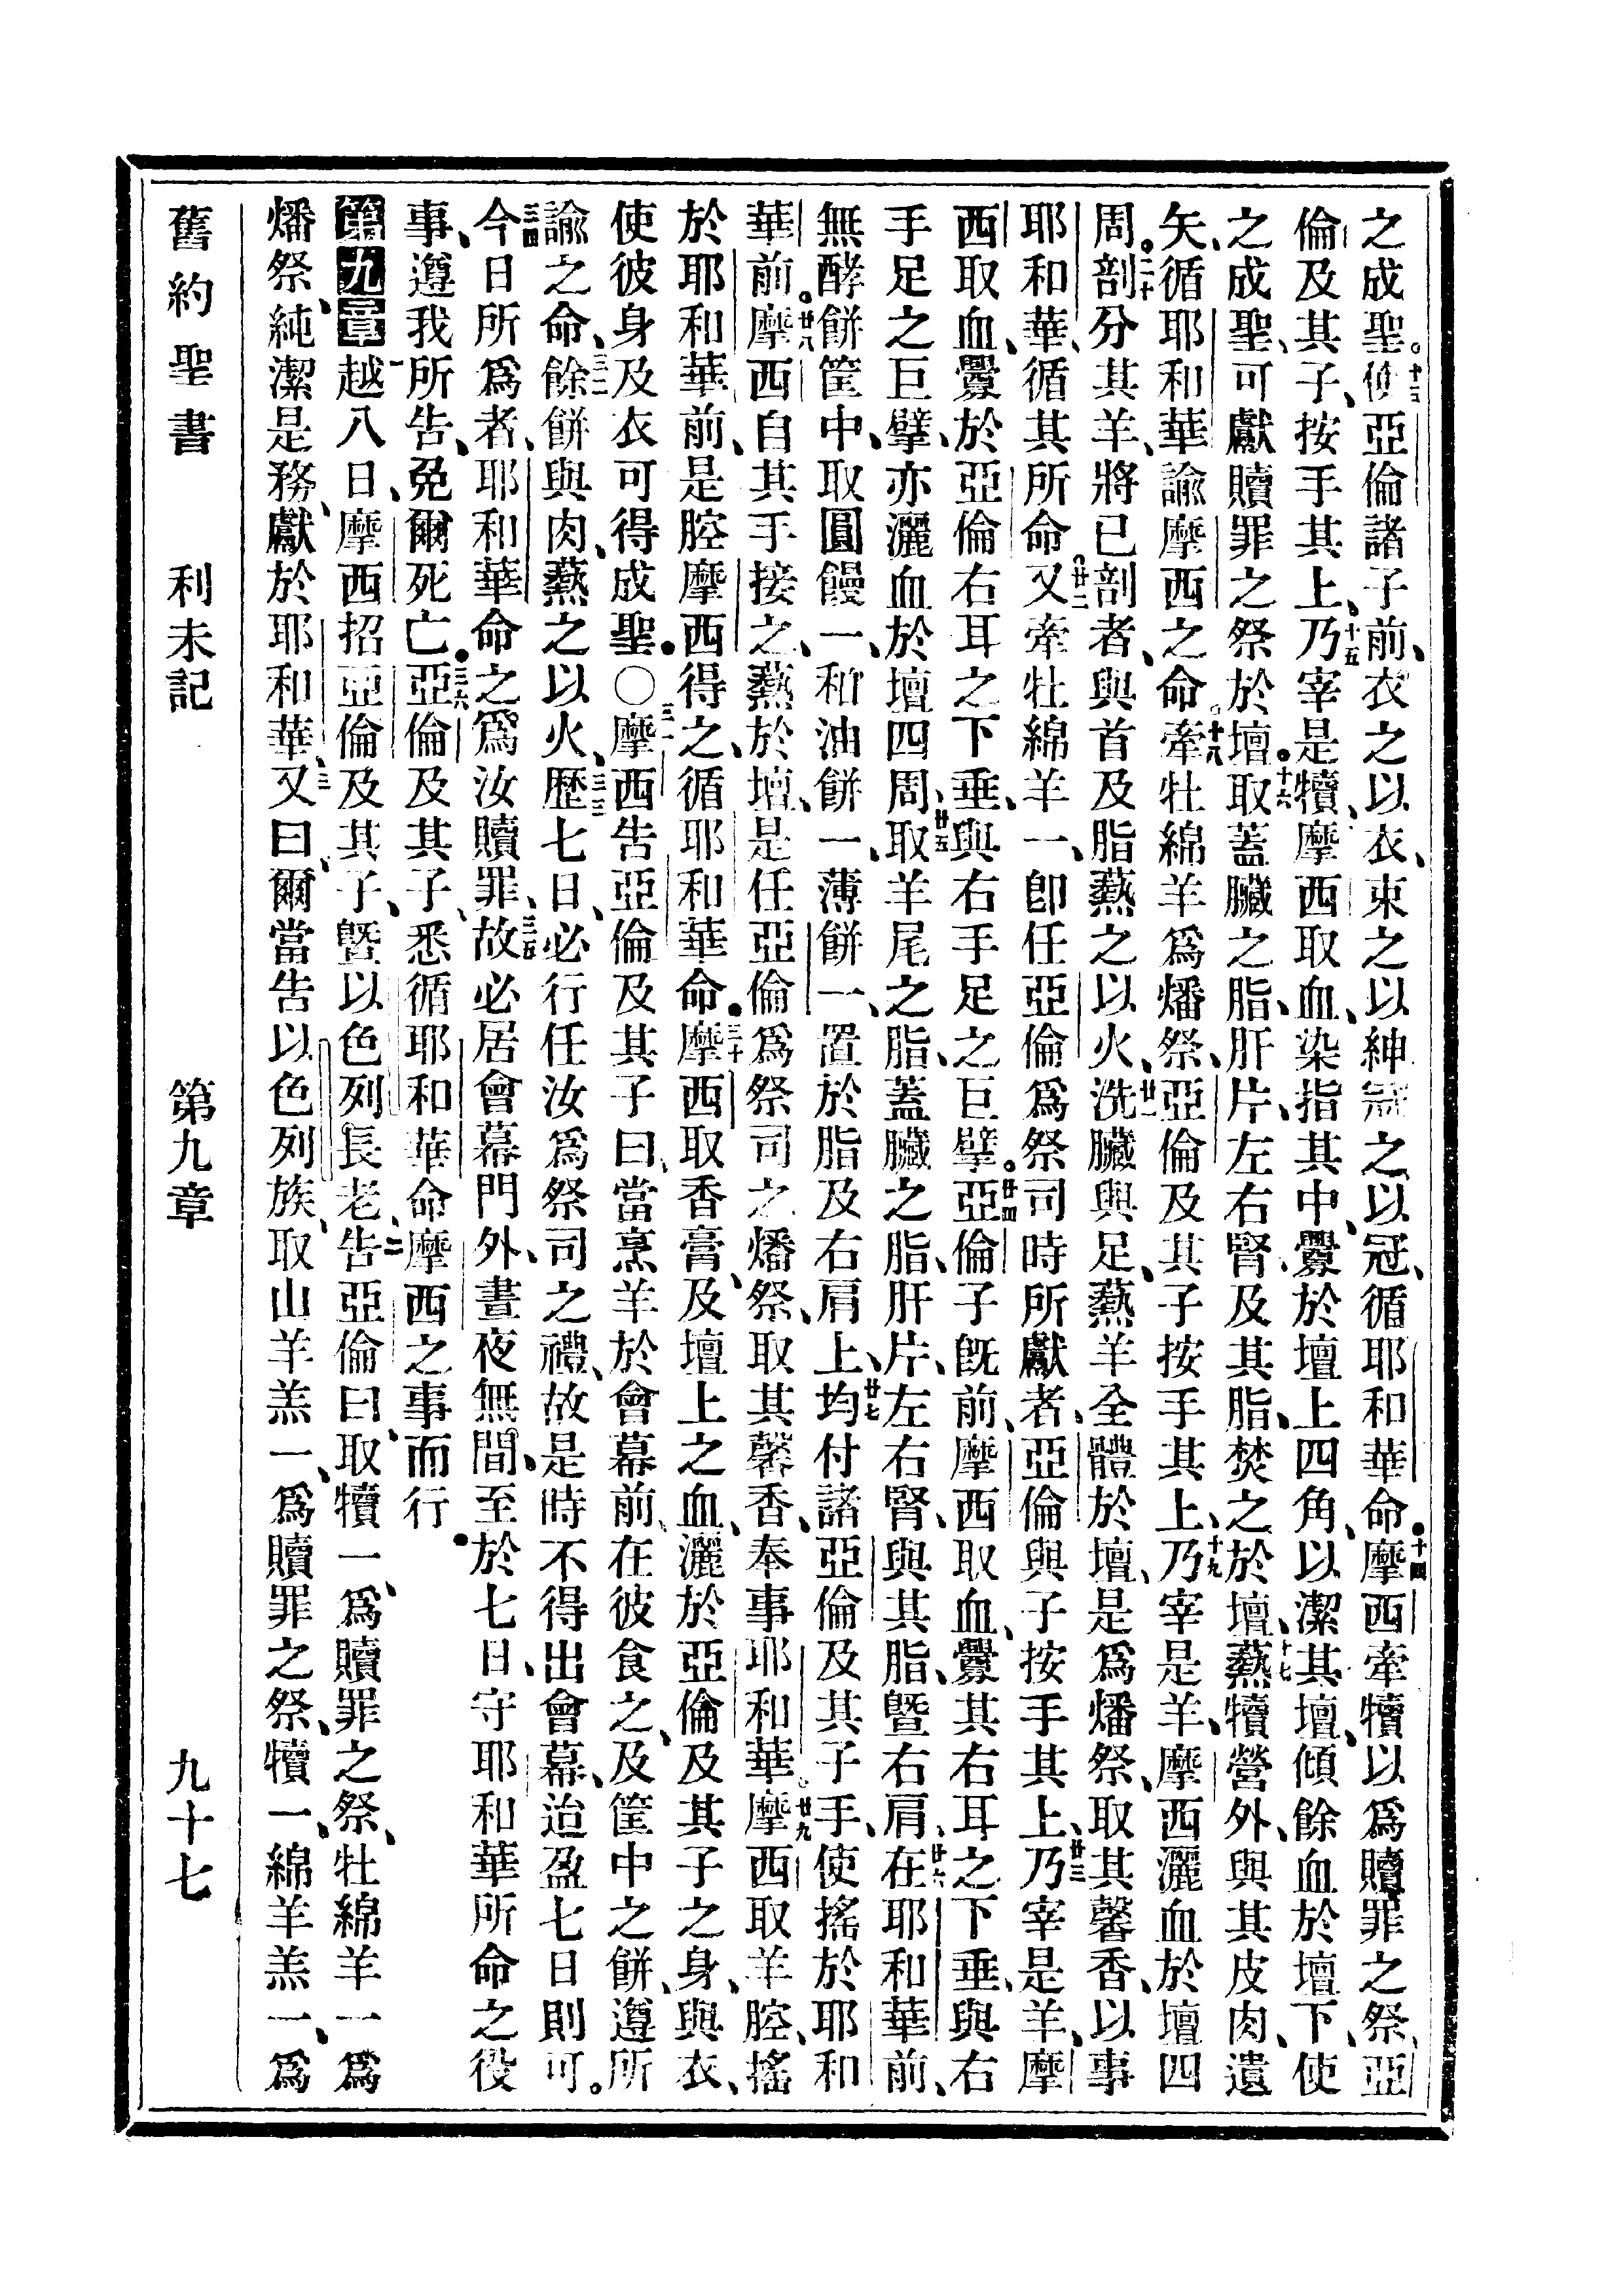 之成聖。十三使亞倫諸子前、衣之以衣、束之以紳、冠之以冠、循耶和華命。十四摩西牽犢以爲贖罪之祭、亞
倫及其子、按手其上、十五乃宰是犢、摩西取血、染指其中、釁於壇上四角、以潔其壇、傾餘血於壇下、使
之成聖、可獻贖罪之祭於壇。十六取蓋臟之脂、肝片、左右腎、及其脂、焚之於壇、十七爇犢營外、與其皮肉、遺
矢、循耶和華諭摩西之命。十八牽牡綿羊爲燔祭、亞倫及其子按手其上、十九乃宰是羊、摩西灑血於壇四
周。二十剖分其羊、將已剖者、與首及脂爇之以火、廿一洗臟與足、爇羊全體於壇、是爲燔祭、取其馨香、以事
耶和華、循其所命。廿二又牽牡綿羊一、卽任亞倫爲祭司時所獻者、亞倫與子按手其上、廿三乃宰是羊、摩
西取血、釁於亞倫右耳之下垂、與右手足之巨擘。廿四亞倫子旣前、摩西取血、釁其右耳之下垂、與右
手足之巨擘、亦灑血於壇四周、廿五取羊尾之脂、蓋臟之脂、肝片、左右腎、與其脂、曁右肩、廿六在耶和華前、
無酵餅筐中、取圓饅一、和油餅一、薄餅一、置於脂及右肩上、廿七均付諸亞倫及其子手、使搖於耶和
華前。廿八摩西自其手接之、爇於壇、是任亞倫爲祭司之燔祭、取其馨香、奉事耶和華。廿九摩西取羊腔、搖
於耶和華前、是腔摩西得之、循耶和華命。三十摩西取香膏、及壇上之血、灑於亞倫及其子之身、與衣、
使彼身及衣可得成聖。○三一摩西告亞倫及其子曰、當烹羊於會幕前、在彼食之、及筐中之餅、遵所
諭之命、三二餘餅與肉、爇之以火、三三歷七日、必行任汝爲祭司之禮、故是時不得出會幕、迨盈七日則可。
三四今日所爲者、耶和華命之爲汝贖罪、三五故必居會幕門外、晝夜無間、至於七日、守耶和華所命之役
事、遵我所告、免爾死亡。三六亞倫及其子、悉循耶和華命摩西之事而行。
第九章 一越八日、摩西招亞倫及其子、曁以色列長老、二告亞倫曰、取犢一、爲贖罪之祭、牡綿羊一爲
燔祭、純潔是務、獻於耶和華、三又曰、爾當告以色列族、取山羊羔一、爲贖罪之祭、犢一、綿羊羔一、爲
舊約聖書 利未記 第九章 九十七